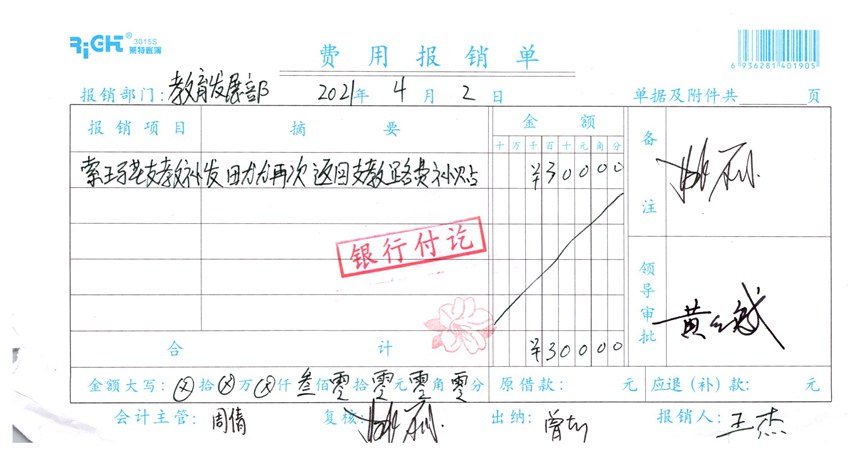 RiGHT® 3015S
莱特账簿
费用报销单
6 936281 401905
报销部门:教育发展部 2021年 4月 2日 单据及附件共 页
报销项目 摘要 金额 备注
十 万 千 百 十 元 角 分
索玛花支教补发田力力再次返回支教路费补贴 ¥30000
银行付讫
领导审批
合计 ¥30000
金额大写: ⊗拾⊗万⊗仟叁佰零拾零元零角零分 原借款: 元 应退(补)款: 元
会计主管: 周倩 复核: 出纳: 报销人: 王杰